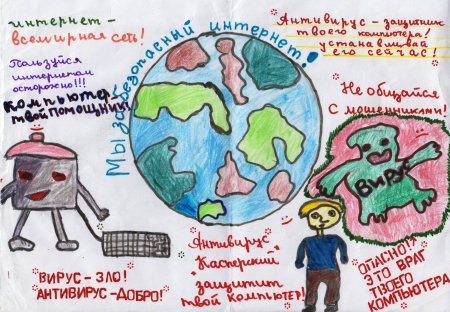 интернет -
всемирная сеть!
Пользуйся
интернетом
осторожно!!!
компьютер
твой помощник!
Мы за безопасный интернет!
Антивирус - защитник
твоего компьютера!
устанавливай
его сейчас!
Не общайся
с мошенниками!
ВИРУС
ВИРУС - ЗЛО!
АНТИВИРУС - ДОБРО!
Антивирус
"Касперский"
защитит
твой компьютер!
ОПАСНО!
ЭТО ВРАГ
ТВОЕГО
КОМПЬЮТЕРА